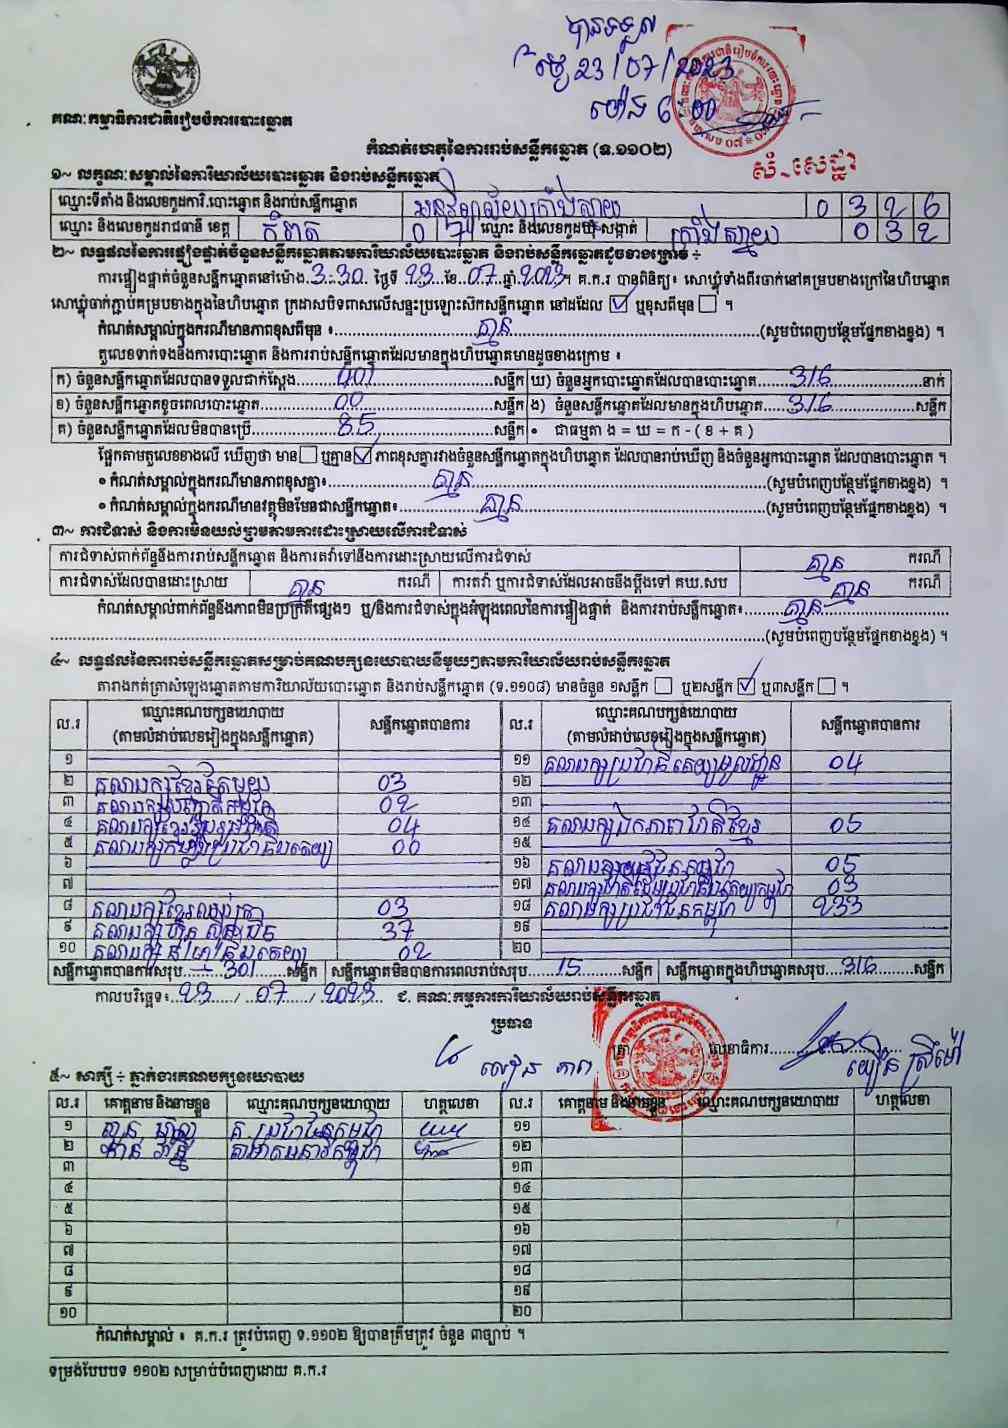 បានទទួល
ថ្ងៃ 23/07/2023
ម៉ោង 6 00
គណៈកម្មាធិការជាតិរៀបចំការបោះឆ្នោត
កំណត់ហេតុនៃការរាប់សន្លឹកឆ្នោត (ទ.១១០២)
សំ-សេដ្ឋា
១~ លក្ខណៈសម្គាល់នៃការិយាល័យបោះឆ្នោត និងរាប់សន្លឹកឆ្នោត
ឈ្មោះទីតាំង និងលេខកូដការិ.បោះឆ្នោត និងរាប់សន្លឹកឆ្នោត អនុវិទ្យាល័យក្រាំងស្វាយ 0 3 2 6
ឈ្មោះ និងលេខកូដរាជធានី ខេត្ត កំពត 0 7 ឈ្មោះ និងលេខកូដឃុំ-សង្កាត់ ក្រាំងស្វាយ 0 3 2
២~ លទ្ធផលនៃការផ្ទៀងផ្ទាត់ចំនួនសន្លឹកឆ្នោតតាមការិយាល័យបោះឆ្នោត និងរាប់សន្លឹកឆ្នោតដូចខាងក្រោម ÷
ការផ្ទៀងផ្ទាត់ចំនួនសន្លឹកឆ្នោតនៅម៉ោង 3:30 ថ្ងៃទី 23 ខែ 07 ឆ្នាំ 2023 ។ គ.ក.រ បានពិនិត្យ៖ សោឃ្លុំទាំងពីរចាក់នៅគម្របខាងក្រៅនៃហិបឆ្នោត
សោឃ្លុំចាក់ភ្ជាប់គម្របខាងក្នុងនៃហិបឆ្នោត ក្រដាសបិទពាសលើសន្ទះប្រឡោះសិកសន្លឹកឆ្នោត នៅដដែល ☑ ឬខុសពីមុន ☐ ។
កំណត់សម្គាល់ក្នុងករណីមានភាពខុសពីមុន ៖ គ្មាន (សូមបំពេញបន្ថែមផ្នែកខាងខ្នង) ។
តួលេខទាក់ទងនឹងការបោះឆ្នោត និងការរាប់សន្លឹកឆ្នោតដែលមានក្នុងហិបឆ្នោតមានដូចខាងក្រោម ៖
ក) ចំនួនសន្លឹកឆ្នោតដែលបានទទួលជាក់ស្តែង 401 សន្លឹក ឃ) ចំនួនអ្នកបោះឆ្នោតដែលបានបោះឆ្នោត 316 នាក់
ខ) ចំនួនសន្លឹកឆ្នោតខូចពេលបោះឆ្នោត 00 សន្លឹក ង) ចំនួនសន្លឹកឆ្នោតដែលមានក្នុងហិបឆ្នោត 316 សន្លឹក
គ) ចំនួនសន្លឹកឆ្នោតដែលមិនបានប្រើ 85 សន្លឹក • ជាធម្មតា ង = ឃ = ក - ( ខ + គ )
ផ្អែកតាមតួលេខខាងលើ ឃើញថា មាន ☐ ឬគ្មាន ☑ ភាពខុសគ្នារវាងចំនួនសន្លឹកឆ្នោតក្នុងហិបឆ្នោត ដែលបានរាប់ឃើញ និងចំនួនអ្នកបោះឆ្នោត ដែលបានបោះឆ្នោត ។
• កំណត់សម្គាល់ក្នុងករណីមានភាពខុសគ្នា៖ គ្មាន (សូមបំពេញបន្ថែមផ្នែកខាងខ្នង) ។
• កំណត់សម្គាល់ក្នុងករណីមានវត្ថុមិនមែនជាសន្លឹកឆ្នោត៖ គ្មាន (សូមបំពេញបន្ថែមផ្នែកខាងខ្នង) ។
៣~ ការជំទាស់ និងការមិនយល់ព្រមតាមការដោះស្រាយលើការជំទាស់
ការជំទាស់ពាក់ព័ន្ធនឹងការរាប់សន្លឹកឆ្នោត និងការតវ៉ាទៅនឹងការដោះស្រាយលើការជំទាស់ គ្មាន ករណី
ការជំទាស់ដែលបានដោះស្រាយ គ្មាន ករណី ការតវ៉ា ឬការជំទាស់ដែលអាចនឹងប្តឹងទៅ គឃ.សប គ្មាន ករណី
កំណត់សម្គាល់ពាក់ព័ន្ធនឹងភាពមិនប្រក្រតីផ្សេងៗ ឬ/និងការជំទាស់ក្នុងអំឡុងពេលនៃការផ្ទៀងផ្ទាត់ និងការរាប់សន្លឹកឆ្នោត៖ គ្មាន
(សូមបំពេញបន្ថែមផ្នែកខាងខ្នង) ។
៤~ លទ្ធផលនៃការរាប់សន្លឹកឆ្នោតសម្រាប់គណបក្សនយោបាយនីមួយៗតាមការិយាល័យរាប់សន្លឹកឆ្នោត
តារាងកត់ត្រាសំឡេងឆ្នោតតាមការិយាល័យបោះឆ្នោត និងរាប់សន្លឹកឆ្នោត (ទ.១១០៨) មានចំនួន ១សន្លឹក ☐ ឬ២សន្លឹក ☑ ឬ៣សន្លឹក ☐ ។
ល.រ ឈ្មោះគណបក្សនយោបាយ (តាមលំដាប់លេខរៀងក្នុងសន្លឹកឆ្នោត) សន្លឹកឆ្នោតបានការ ល.រ ឈ្មោះគណបក្សនយោបាយ (តាមលំដាប់លេខរៀងក្នុងសន្លឹកឆ្នោត) សន្លឹកឆ្នោតបានការ
១ ១១ គណបក្សប្រជាធិបតេយ្យមូលដ្ឋាន 04
២ គណបក្សខ្មែរតែមួយ 03 ១២
៣ គណបក្សសញ្ជាតិកម្ពុជា 02 ១៣
៤ គណបក្សខ្មែររួបរួមជាតិ 04 ១៤ គណបក្សឯកភាពជាតិខ្មែរ 05
៥ គណបក្សកម្លាំងប្រជាធិបតេយ្យ 00 ១៥
៦ ១៦ គណបក្សយុវជនកម្ពុជា 05
៧ ១៧ 03
៨ គណបក្សខ្មែរឈប់ក្រ 03 ១៨ គណបក្សប្រជាជនកម្ពុជា 233
៩ គណបក្សហ៊្វុនស៊ិនប៉ិច 37 ១៩
១០ គណបក្សធម្មាធិបតេយ្យ 02 ២០
សន្លឹកឆ្នោតបានការសរុប 301 សន្លឹក សន្លឹកឆ្នោតមិនបានការពេលរាប់សរុប 15 សន្លឹក សន្លឹកឆ្នោតក្នុងហិបឆ្នោតសរុប 316 សន្លឹក
កាលបរិច្ឆេទ៖ 23 / 07 / 2023 ជ. គណៈកម្មការការិយាល័យរាប់សន្លឹកឆ្នោត
ប្រធាន
ត្រា លេខាធិការ
៥~ សាក្សី ÷ ភ្នាក់ងារគណបក្សនយោបាយ
ល.រ គោត្តនាម និងនាមខ្លួន ឈ្មោះគណបក្សនយោបាយ ហត្ថលេខា ល.រ គោត្តនាម និងនាមខ្លួន ឈ្មោះគណបក្សនយោបាយ ហត្ថលេខា
១ គ ប្រជាជនកម្ពុជា ១១
២ ១២
៣ ១៣
៤ ១៤
៥ ១៥
៦ ១៦
៧ ១៧
៨ ១៨
៩ ១៩
១០ ២០
កំណត់សម្គាល់ ៖ គ.ក.រ ត្រូវបំពេញ ទ.១១០២ ឱ្យបានត្រឹមត្រូវ ចំនួន ៣ច្បាប់ ។
ទម្រង់បែបបទ ១១០២ សម្រាប់បំពេញដោយ គ.ក.រ